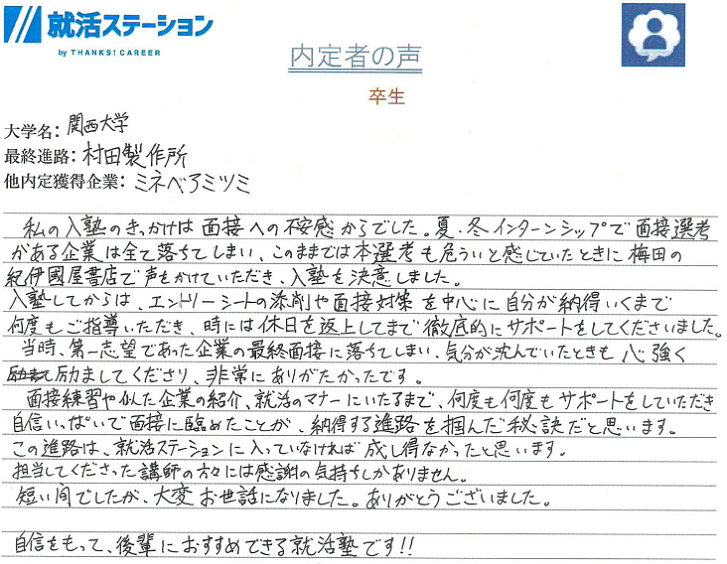 就活ステーション
by THANKS! CAREER
内定者の声
卒生
大学名: 関西大学
最終進路: 村田製作所
他内定獲得企業: ミネベアミツミ
私の入塾のきっかけは面接への不安感からでした。夏・冬インターンシップで面接選考
がある企業は全て落ちてしまい、このままでは本選考も危ういと感じていたときに梅田の
紀伊國屋書店で声をかけていただき、入塾を決意しました。
入塾してからは、エントリーシートの添削や面接対策を中心に自分が納得いくまで
何度もご指導いただき、時には休日を返上してまで徹底的にサポートをしてくださいました。
当時、第一志望であった企業の最終面接に落ちてしまい、気分が沈んでいたときも心強く
励ましてくださり、非常にありがたかったです。
面接練習や似た企業の紹介、就活のマナーにいたるまで、何度も何度もサポートをしていただき
自信いっぱいで面接に臨めたことが、納得する進路を掴んだ秘訣だと思います。
この進路は、就活ステーションに入っていなければ成し得なかったと思います。
担当してくださった講師の方々には感謝の気持ちしかありません。
短い間でしたが、大変お世話になりました。ありがとうございました。
自信をもって、後輩におすすめできる就活塾です!!